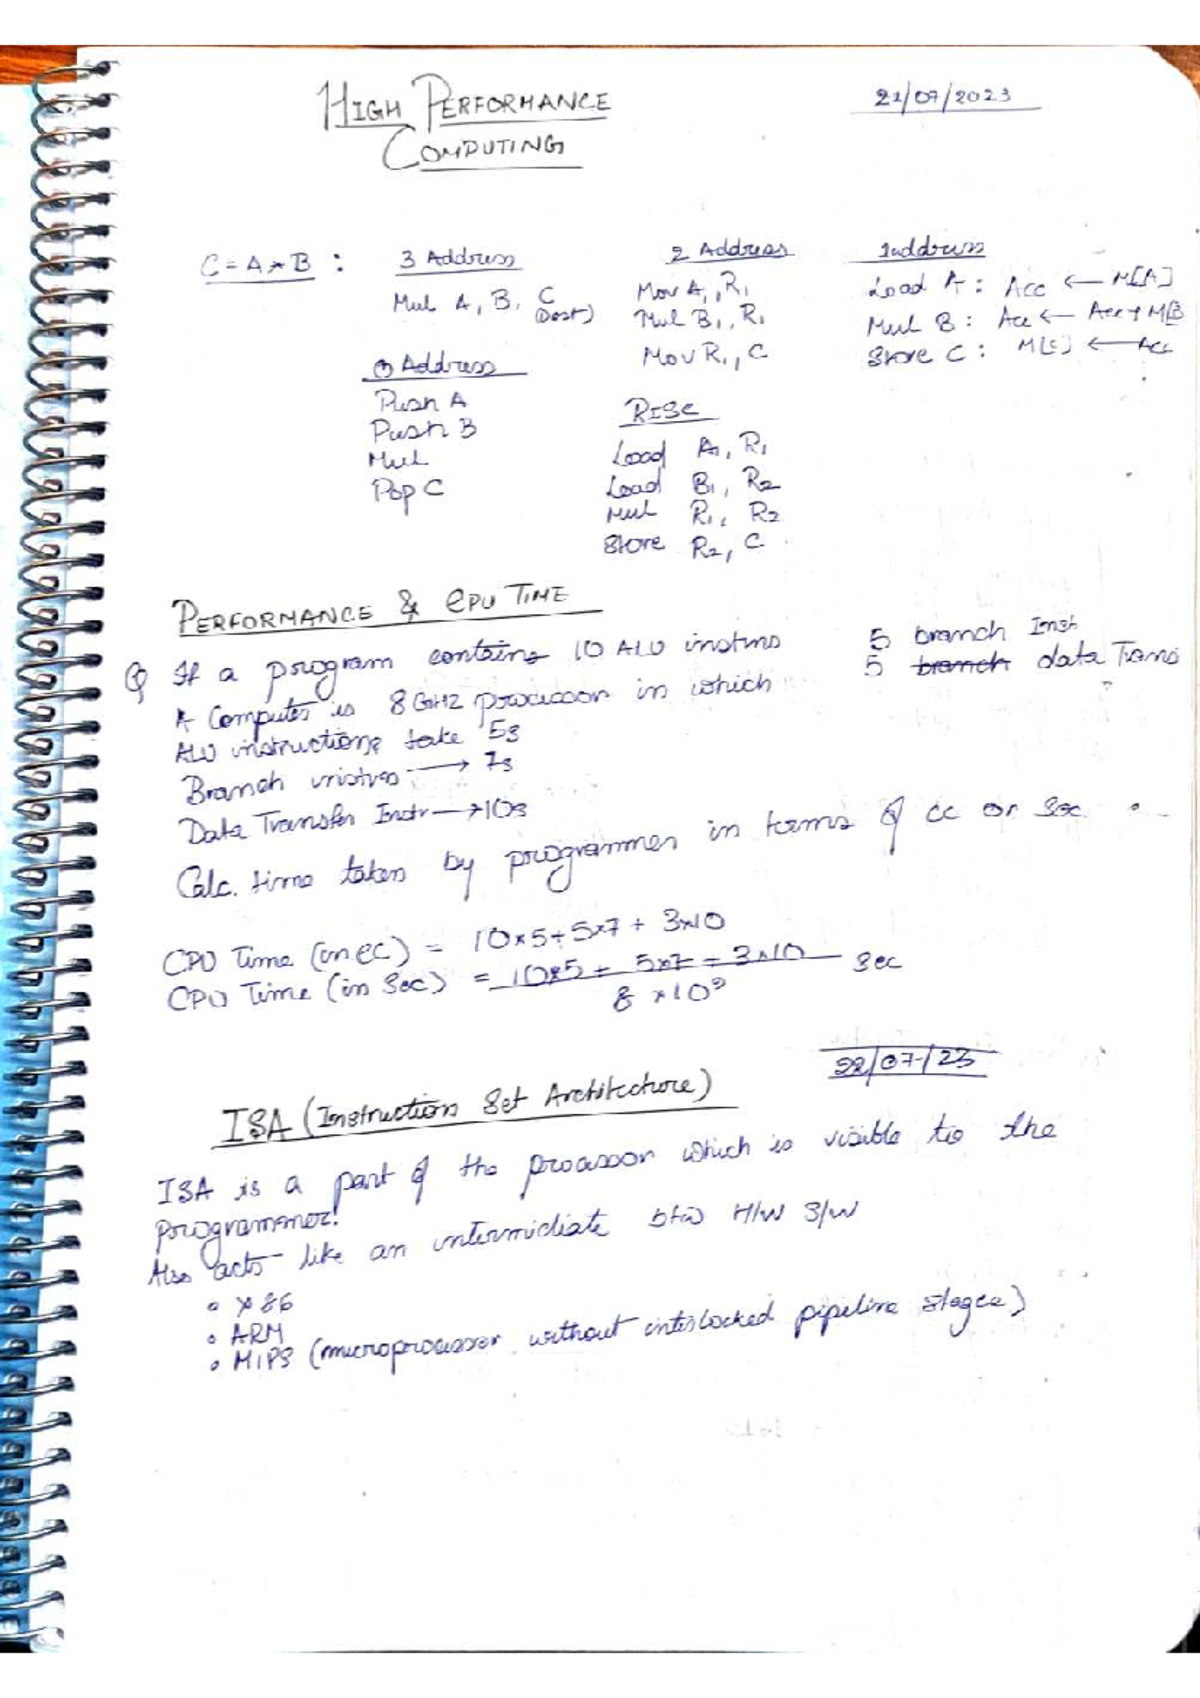 HIGH PERFORMANCE
COMPUTING
21/07/2023
C = A * B :
3 Address
Mul A, B, C
(Dest)
2 Address
Mov A, R1
Mul B, R1
Mov R1, C
1 address
Load A : Acc ← M[A]
Mul B : Acc ← Acc * M[B
Store C : M[C] ← Acc
0 Address
Push A
Push B
Mul
Pop C
RISC
Load A, R1
Load B, R2
Mul R1, R2
Store R2, C
PERFORMANCE & CPU TIME
Q If a program contains 10 ALU instrns 5 branch Inst
5 branch data Trans
A Computer is 8 GHZ processor in which
ALU instructions take 5s
Branch instrns → 7s
Data Transfer Instr → 10s
Calc. time taken by programmer in terms of cc or sec.
CPU Time (in CC) = 10*5+5*7+3*10
CPU Time (in Sec) = 10*5 + 5*7 + 3*10 sec
8 * 10⁹
22/07/23
ISA (Instruction Set Architecture)
ISA is a part of the processor which is visible to the
programmer!
Also acts like an intermidiate btw H/W S/W
• x86
• ARM
• MIPS (microprocesser without interlocked pipeline stages)